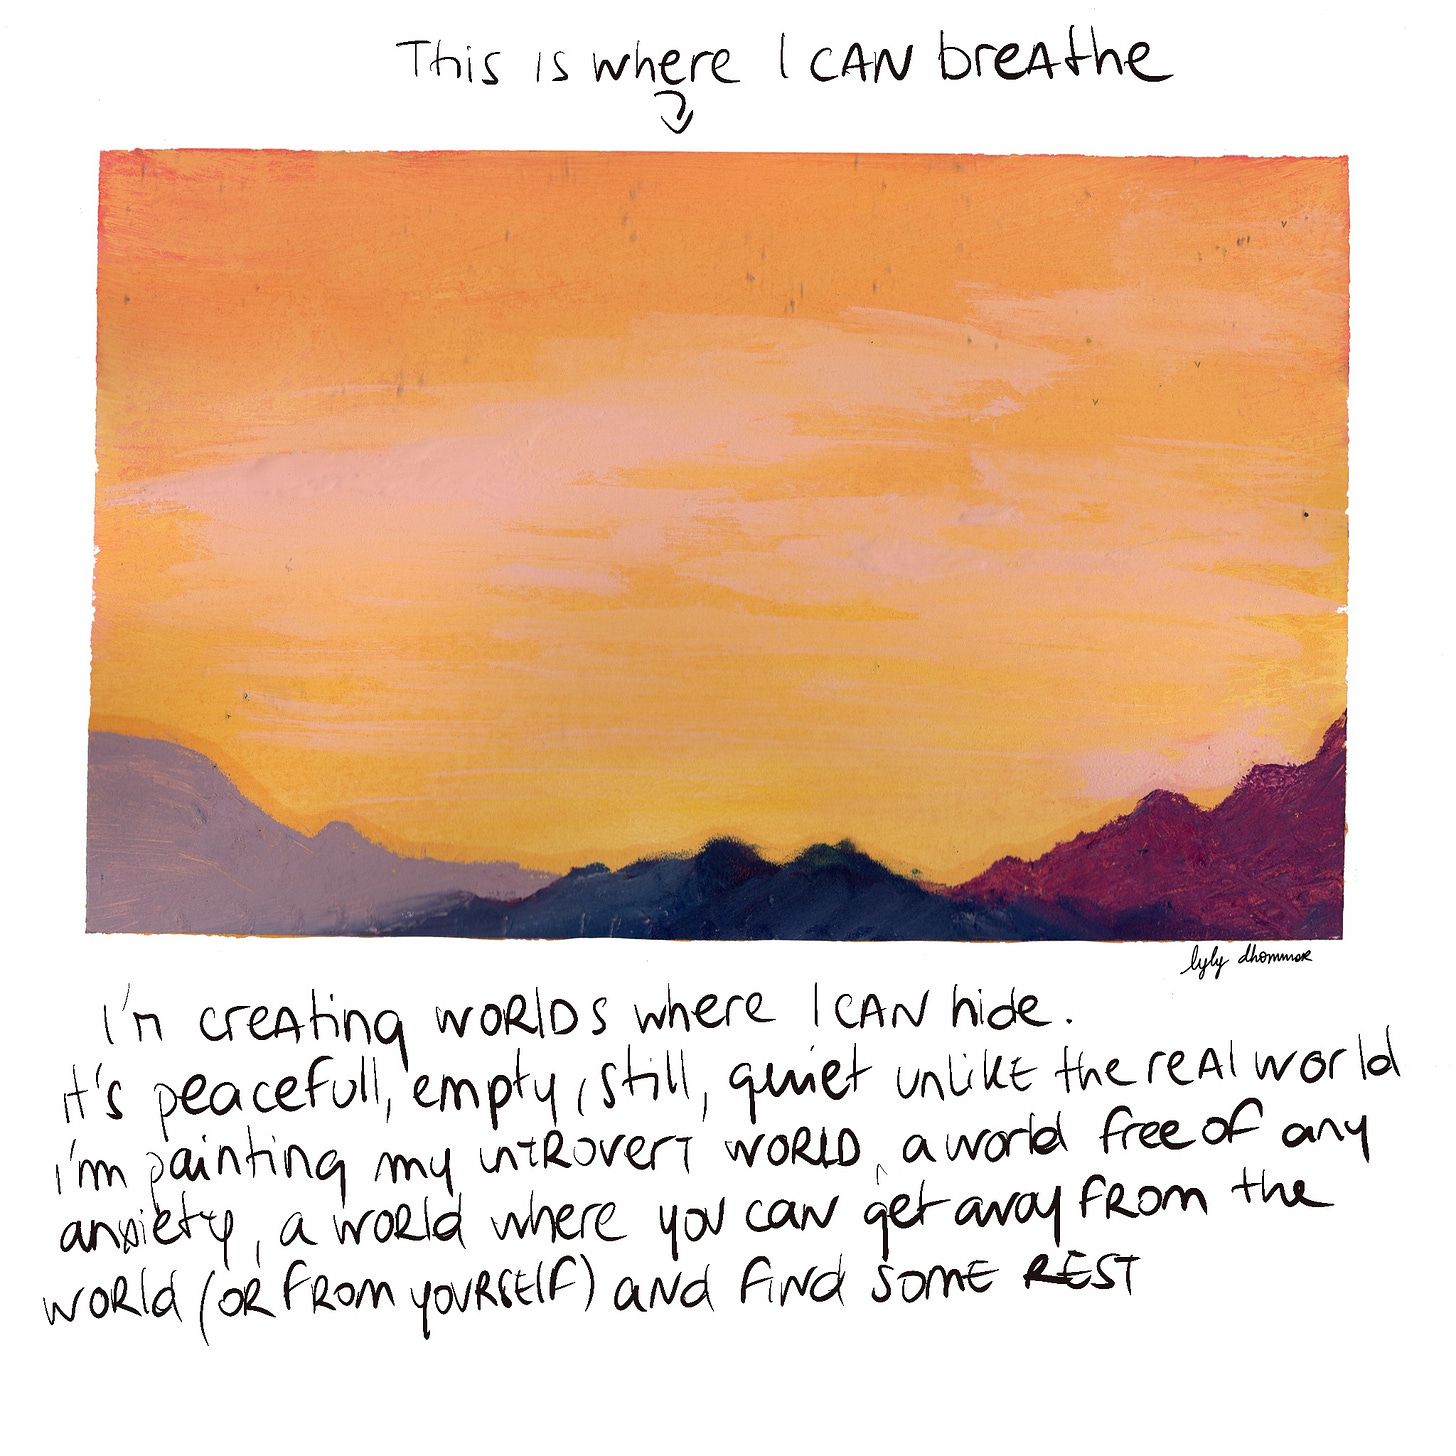 This is where I CAN breathe
lyly dhommar
I'm creating worlds where I CAN hide.
it's peacefull, empty, still, quiet unlike the real world
i'm painting my introvert world, a world free of any
anxiety, a world where you can get away from the
world (or from yourself) and find some REST